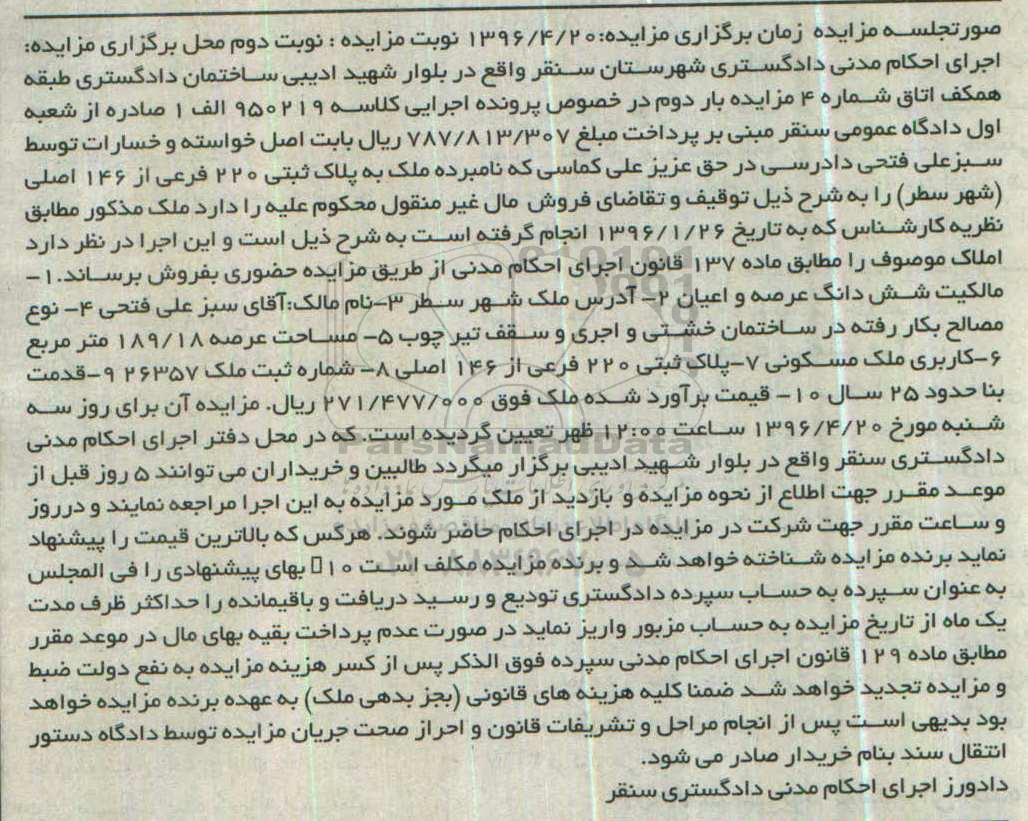 صورتجلسه مزایده زمان برگزاری مزایده:۱۳۹۶/۴/۲۰ نوبت مزایده : نوبت دوم محل برگزاری مزایده:
اجرای احکام مدنی دادگستری شهرستان سنقر واقع در بلوار شهید ادیبی ساختمان دادگستری طبقه
همکف اتاق شماره ۴ مزایده بار دوم در خصوص پرونده اجرایی کلاسه ۹۵۰۲۱۹ الف ۱ صادره از شعبه
اول دادگاه عمومی سنقر مبنی بر پرداخت مبلغ ۷۸۷/۸۱۳/۳۰۷ ریال بابت اصل خواسته و خسارات توسط
سبزعلی فتحی دادرسی در حق عزیز علی کماسی که نامبرده ملک به پلاک ثبتی ۲۲۰ فرعی از ۱۴۶ اصلی
(شهر سطر) را به شرح ذیل توقیف و تقاضای فروش مال غیر منقول محکوم علیه را دارد ملک مذکور مطابق
نظریه کارشناس که به تاریخ ۱۳۹۶/۱/۲۶ انجام گرفته است به شرح ذیل است و این اجرا در نظر دارد
املاک موصوف را مطابق ماده ۱۳۷ قانون اجرای احکام مدنی از طریق مزایده حضوری بفروش برساند.۱-
مالکیت شش دانگ عرصه و اعیان ۲- آدرس ملک شهر سطر ۳-نام مالک:آقای سبز علی فتحی ۴- نوع
مصالح بکار رفته در ساختمان خشتی و اجری و سقف تیر چوب ۵- مساحت عرصه ۱۸۹/۱۸ متر مربع
۶-کاربری ملک مسکونی ۷-پلاک ثبتی ۲۲۰ فرعی از ۱۴۶ اصلی ۸- شماره ثبت ملک ۲۶۳۵۷ ۹-قدمت
بنا حدود ۲۵ سال ۱۰- قیمت برآورد شده ملک فوق ۲۷۱/۴۷۷/۰۰۰ ریال. مزایده آن برای روز سه
شنبه مورخ ۱۳۹۶/۴/۲۰ ساعت ۱۲:۰۰ ظهر تعیین گردیده است. که در محل دفتر اجرای احکام مدنی
دادگستری سنقر واقع در بلوار شهید ادیبی برگزار میگردد طالبین و خریداران می توانند ۵ روز قبل از
موعد مقرر جهت اطلاع از نحوه مزایده و بازدید از ملک مورد مزایده به این اجرا مراجعه نمایند و درروز
و ساعت مقرر جهت شرکت در مزایده در اجرای احکام حاضر شوند. هرکس که بالاترین قیمت را پیشنهاد
نماید برنده مزایده شناخته خواهد شد و برنده مزایده مکلف است ۱۰ بهای پیشنهادی را فی المجلس
به عنوان سپرده به حساب سپرده دادگستری تودیع و رسید دریافت و باقیمانده را حداکثر ظرف مدت
یک ماه از تاریخ مزایده به حساب مزبور واریز نماید در صورت عدم پرداخت بقیه بهای مال در موعد مقرر
مطابق ماده ۱۲۹ قانون اجرای احکام مدنی سپرده فوق الذکر پس از کسر هزینه مزایده به نفع دولت ضبط
و مزایده تجدید خواهد شد ضمنا کلیه هزینه های قانونی (بجز بدهی ملک) به عهده برنده مزایده خواهد
بود بدیهی است پس از انجام مراحل و تشریفات قانون و احراز صحت جریان مزایده توسط دادگاه دستور
انتقال سند بنام خریدار صادر می شود.
دادورز اجرای احکام مدنی دادگستری سنقر
ParsNamadData